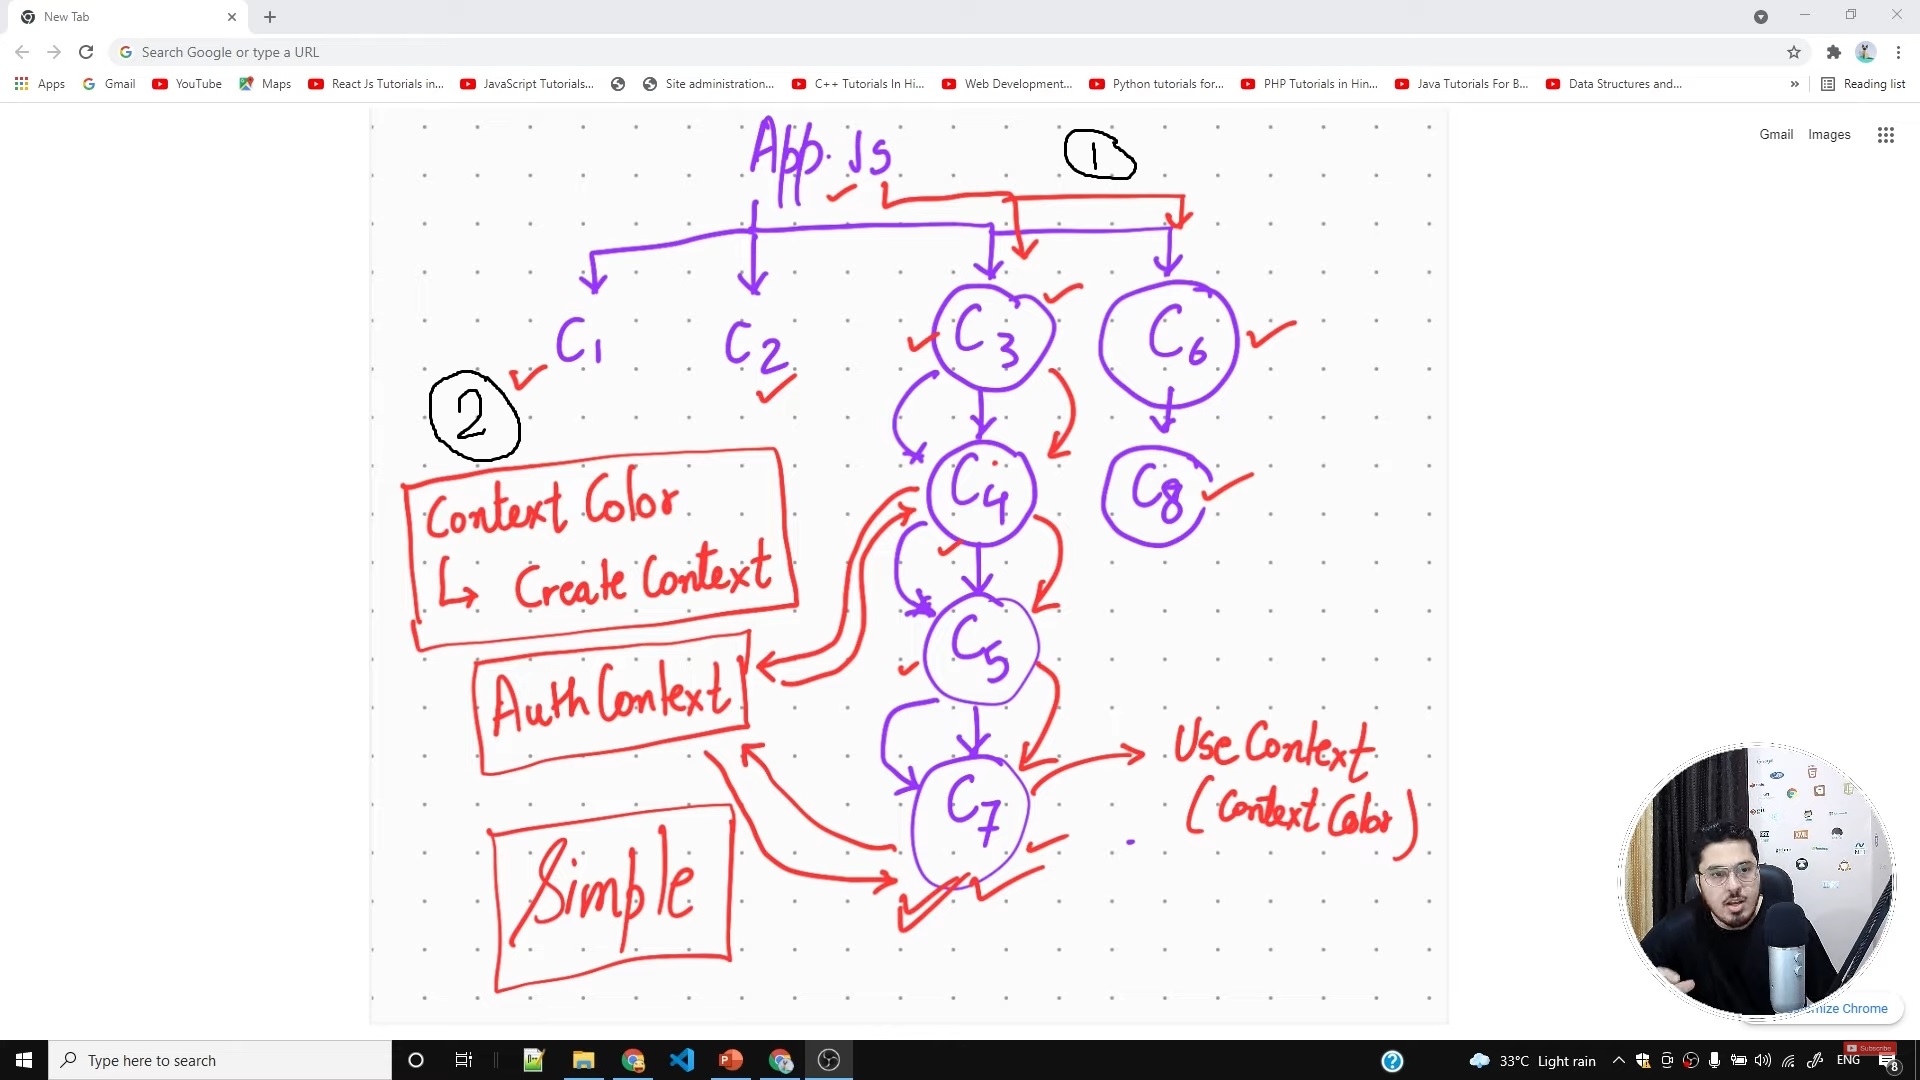 New Tab
Search Google or type a URL
Apps Gmail YouTube Maps React Js Tutorials in... JavaScript Tutorials... Site administration... C++ Tutorials In Hi... Web Development... Python tutorials for... PHP Tutorials in Hin... Java Tutorials For B... Data Structures and... » Reading list
Gmail Images
App.Js
1
C1 C2 C3 C6
2
C4 C8
Context Color
↳ Create Context
C5
Auth Context
Use Context
(Context Color)
C7
Simple
mize Chrome
Type here to search
33°C Light rain
ENG
Subscribe
8